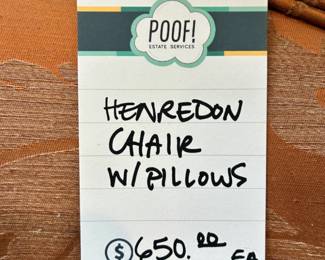 POOF!
ESTATE SERVICES
HENREDON
CHAIR
W/PILLOWS
$650.00 EA